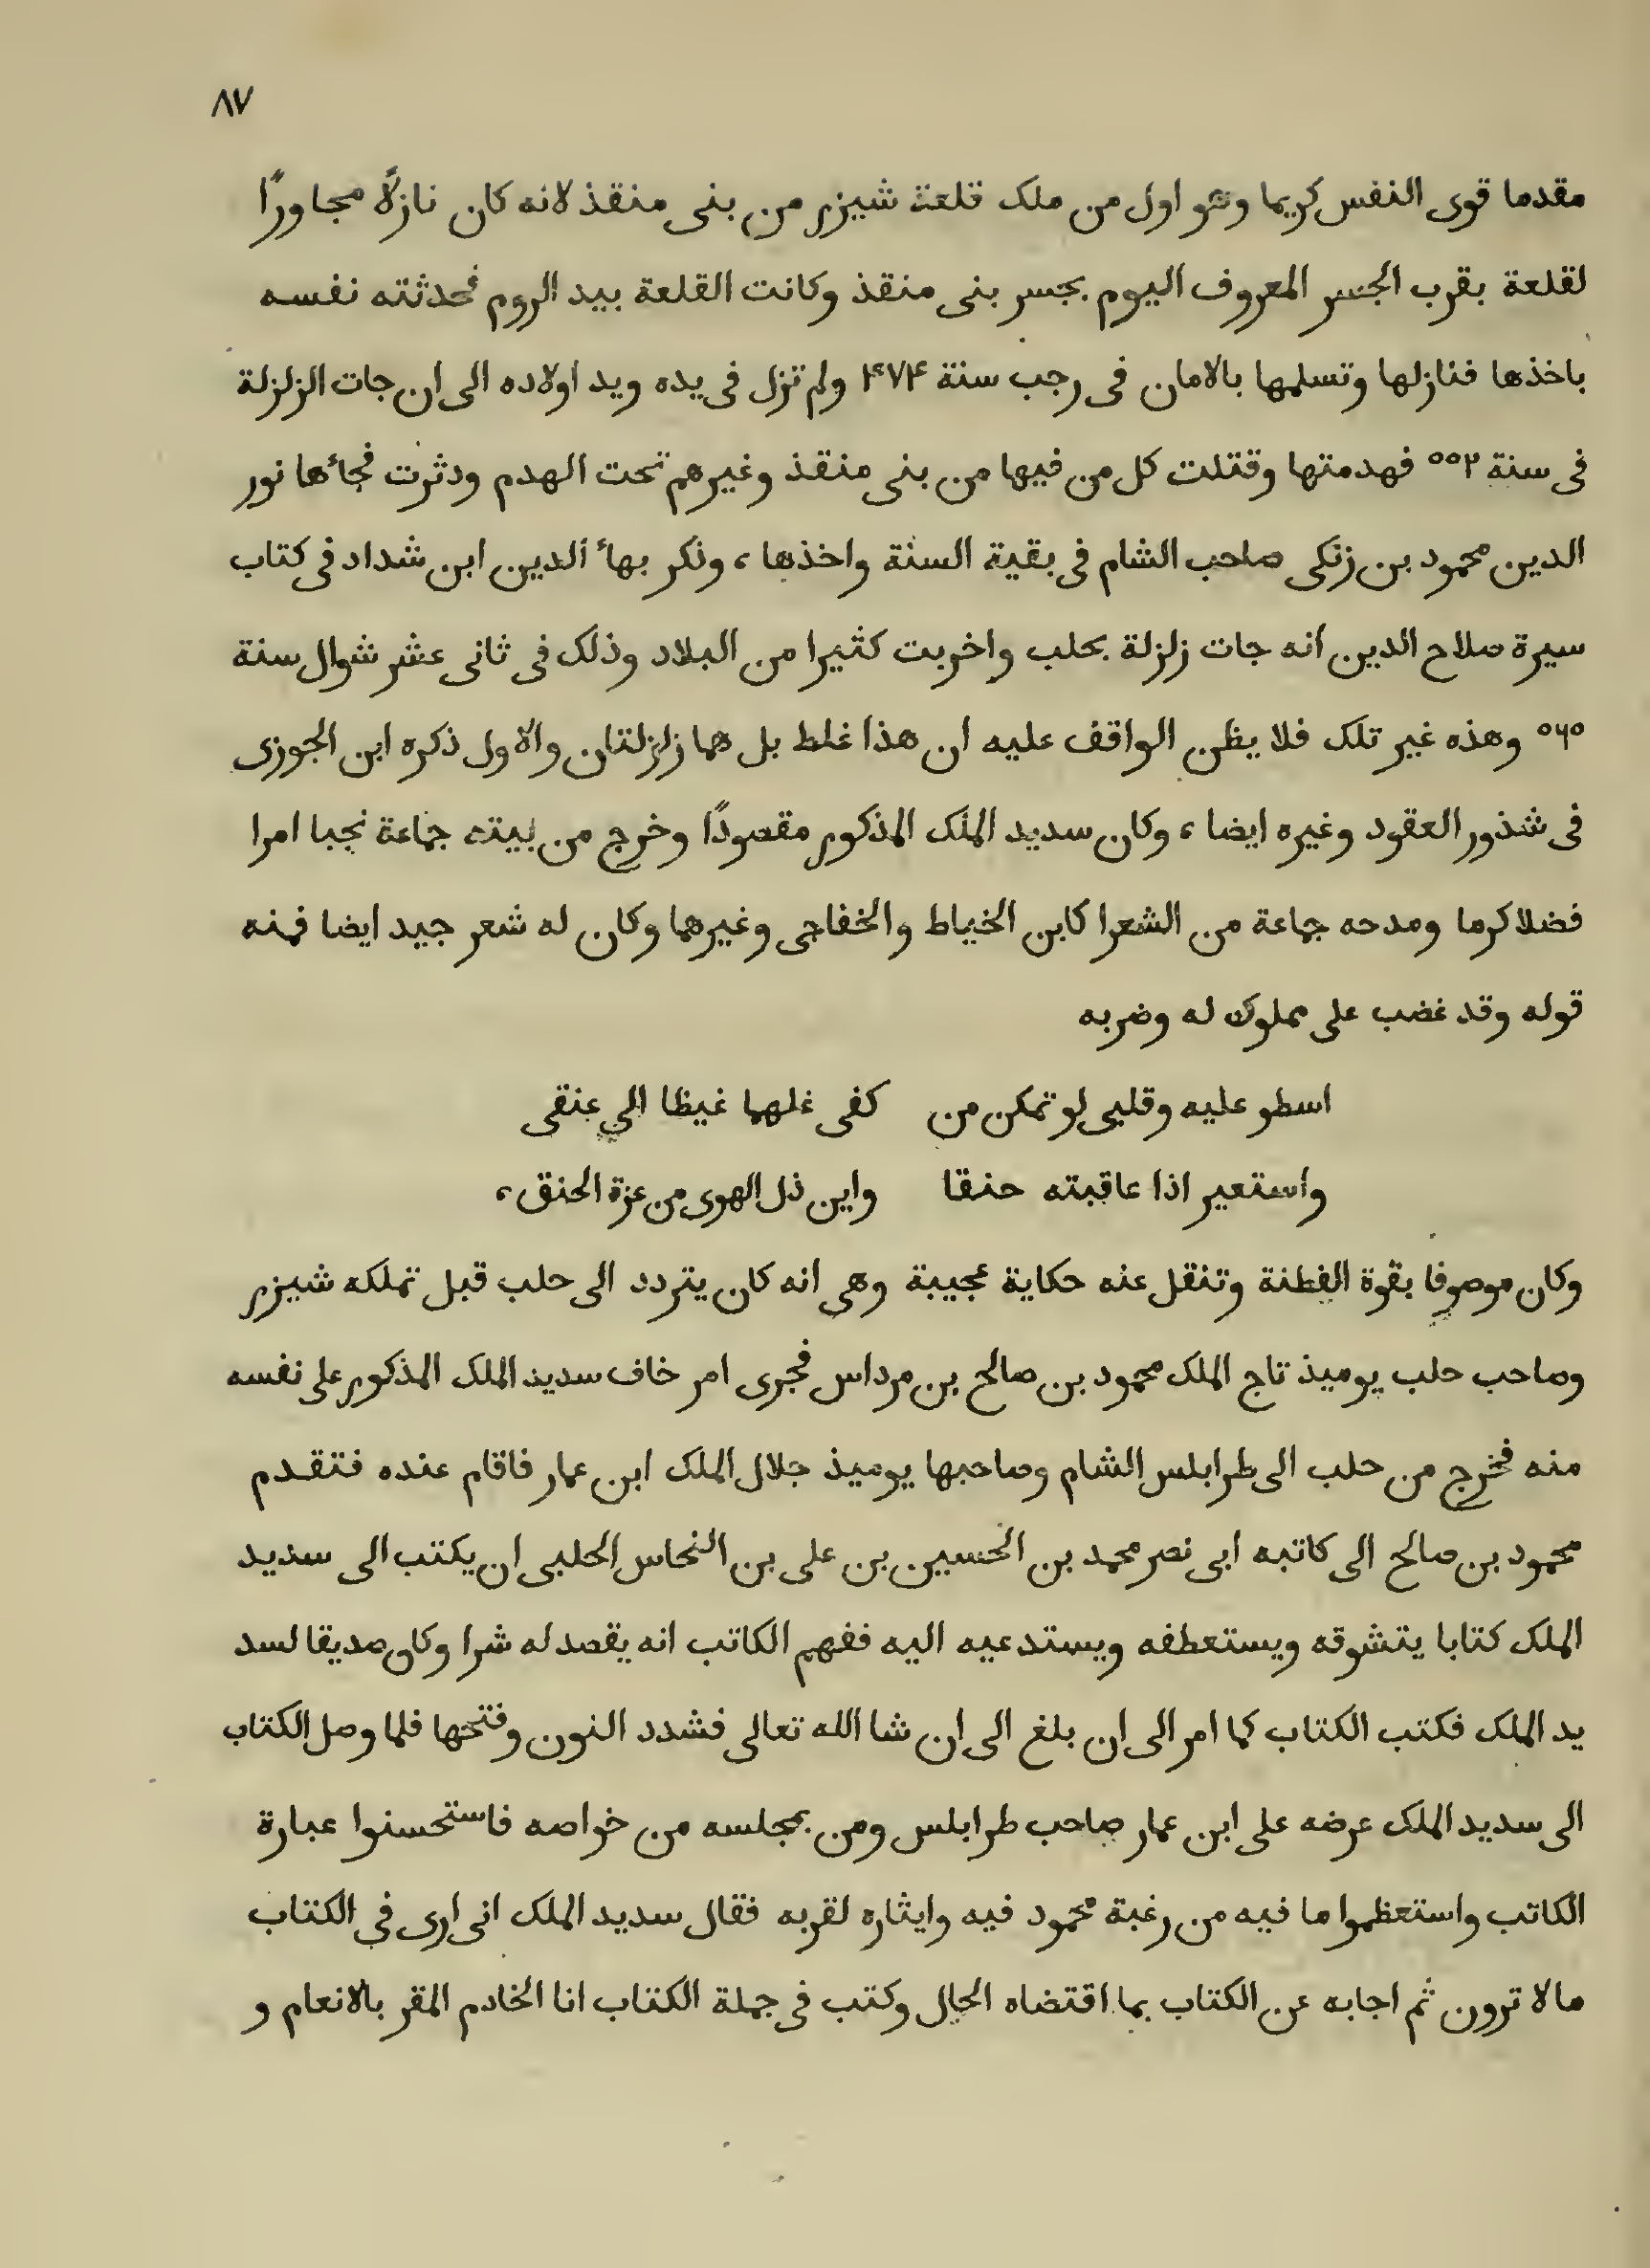 ٨٧
مقدما قوى النفس كريما وهو اول من ملك قلعة شيزر من بنى منقذ لانه كان نازلًا مجاورًا
لقلعة بقرب الجسر المعروف اليوم بجسر بنى منقذ وكانت القلعة بيد الروم فحدثته نفسه
باخذها فنازلها وتسلمها بالامان فى رجب سنة ۴۷۴ ولم تزل فى يده ويد اولاده الى ان جات الزلزلة
فى سنة ٥٥٢ فهدمتها وقتلت كل من فيها من بنى منقذ وغيرهم تحت الهدم ودثرت فجأها نور
الدين محمود بن زنكى صاحب الشام فى بقية السنة واخذها، وذكر بهأ الدين ابن شداد فى كتاب
سيرة صلاح الدين انه جات زلزلة بحلب واخربت كثيرا من البلاد وذلك فى ثانى عشر شوال سنة
٥٦٥ وهذه غير تلك فلا يظن الواقف عليه ان هذا غلط بل هما زلزلتان والاول ذكره ابن الجوزى
فى شذور العقود وغيره ايضا، وكان سديد الملك المذكور مقصودًا وخرج من بيته جماعة نجبا امرا
فضلا كرما ومدحه جماعة من الشعرا كابن الخياط والخفاجى وغيرهما وكان له شعر جيد ايضا فمنه
قوله وقد غضب على مملوك له وضربه
اسطو عليه وقلبى لو تمكن من كفى غلهما غيظا الى عنقى
واستعير اذا عاقبته حنقا واين ذل الهوى من عزة الحنق،
وكان موصوفا بقوة الفطنة وتنقل عنه حكاية عجيبة وهى انه كان يتردد الى حلب قبل تملكه شيزر
وصاحب حلب يوميذ تاج الملك محمود بن صالح بن مرداس فجرى امر خاف سديد الملك المذكور على نفسه
منه فخرج من حلب الى طرابلس الشام وصاحبها يوميذ جلال الملك ابن عمار فاقام عنده فتقدم
محمود بن صالح الى كاتبه ابى نصر محمد بن الحسين بن على بن النحاس الحلبى ان يكتب الى سديد
الملك كتابا يتشوقه ويستعطفه ويستدعيه اليه ففهم الكاتب انه يقصد له شرا وكان صديقا لسد
يد الملك فكتب الكتاب كما امر الى ان بلغ الى ان شا الله تعالى فشدد النون وفتحها فلما وصل الكتاب
الى سديد الملك عرضه على ابن عمار صاحب طرابلس ومن بمجلسه من خواصه فاستحسنوا عبارة
الكاتب واستعظموا ما فيه من رغبة محمود فيه وايثاره لقربه فقال سديد الملك انى ارى فى الكتاب
مالا ترون ثم اجابه عن الكتاب بما اقتضاه الحال وكتب فى جملة الكتاب انا الخادم المقر بالانعام و